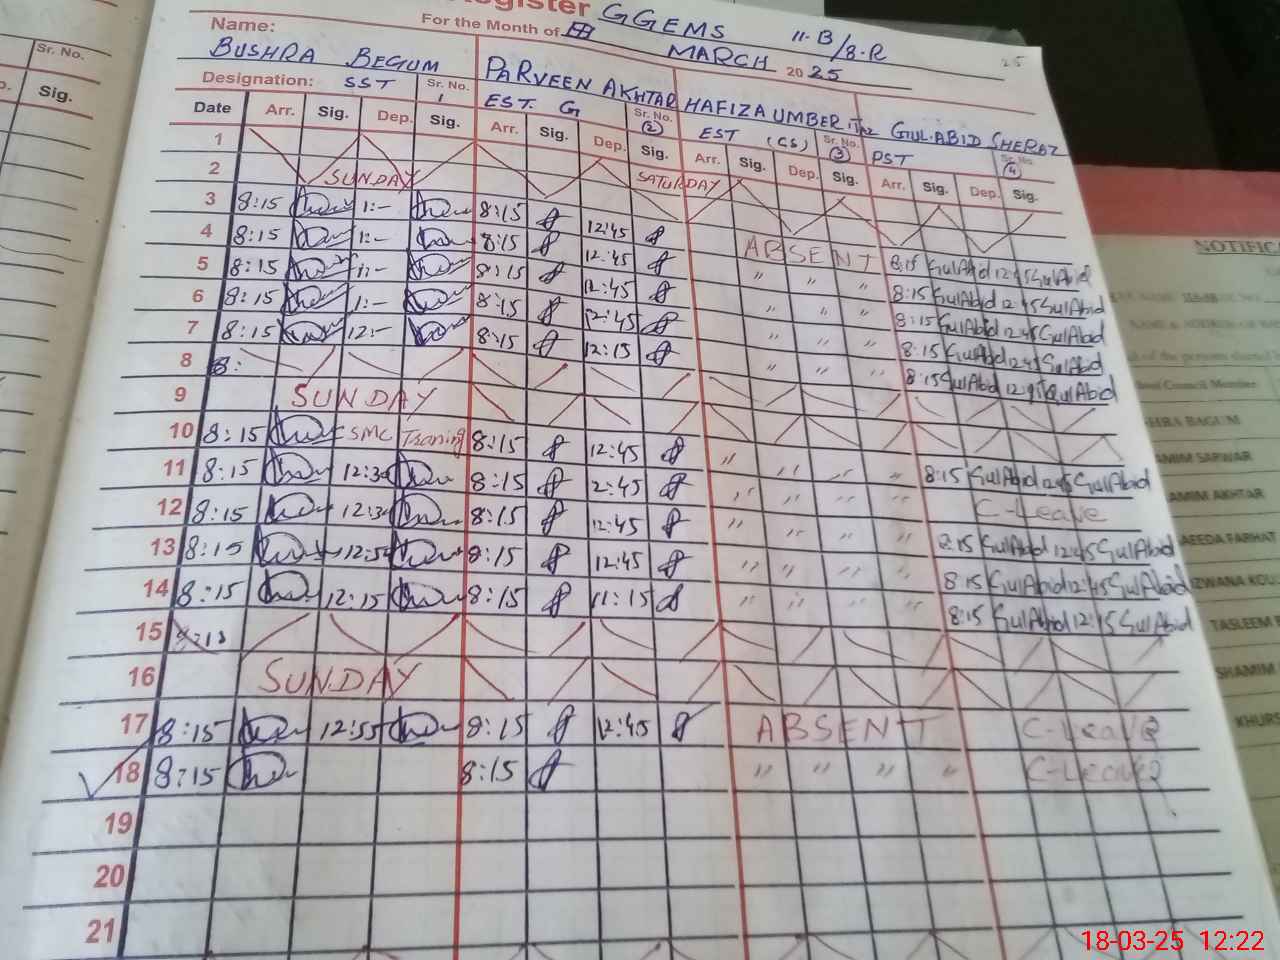 Register GGEMS 11-B/8-R
For the Month of MARCH 2025
25
Name:
BUSHRA BEGUM PARVEEN AKHTAR HAFIZA UMBER GUL.ABID SHERAZ
Designation: SST Sr. No. 1 EST. G Sr. No. (2) EST (GS) Sr. No. (3) PST Sr. No. (4)
Date Arr. Sig. Dep. Sig. Arr. Sig. Dep. Sig. Arr. Sig. Dep. Sig. Arr. Sig. Dep. Sig.
1
2 SUNDAY SATURDAY
3 8:15 1:- 8:15 12:45 ABSENT 8:15 GulAbid 12:45 GulAbid
4 8:15 1:- 8:15 12:45 " " " 8:15 GulAbid 12:45 GulAbid
5 8:15 1:- 8:15 12:45 " " " 8:15 GulAbid 12:45 GulAbid
6 8:15 1:- 8:15 12:45 " " " 8:15 GulAbid 12:45 GulAbid
7 8:15 12:- 8:15 12:15 " " " 8:15 GulAbid GulAbid
8 8:
9 SUNDAY
10 8:15 SMC Traning 8:15 12:45 " " " " 8:15 GulAbid 12:45 GulAbid
11 8:15 12:30 8:15 2:45 " " " " C-Leave
12 8:15 12:30 8:15 12:45 " " " " 8:15 GulAbid 12:45 GulAbid
13 8:15 12:54 8:15 12:45 " " " " 8:15 GulAbid 12:45 GulAbid
14 8:15 12:15 8:15 11:15 " " " " 8:15 GulAbid 12:15 GulAbid
15
16 SUNDAY
17 8:15 12:55 8:15 12:45 ABSENT C-Leave
18 8:15 8:15 " " " " C-Leave
19
20
21
Sr. No.
Sig.
NOTIFICA
BAGUM
SARWAR
AKHTAR
AEEDA FARHAT
IZWANA KOU
TASLEEM
SHAMIM
KHURS
18-03-25 12:22